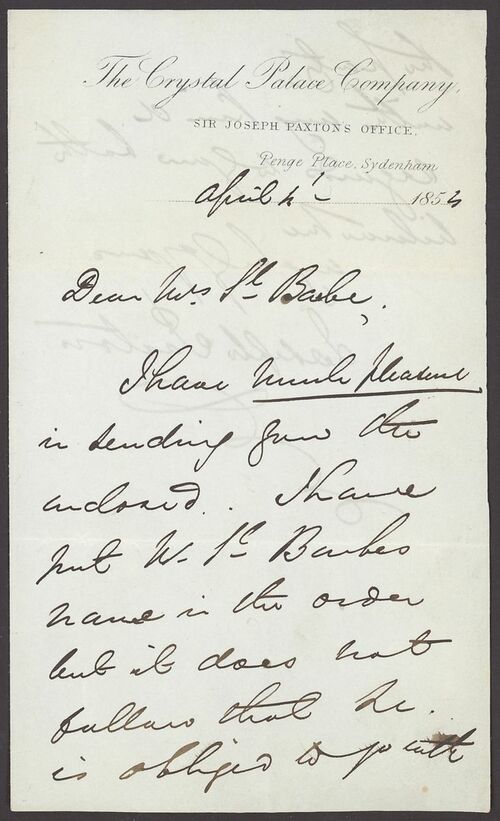 The Crystal Palace Company,
SIR JOSEPH PAXTON'S OFFICE,
Penge Place, Sydenham
April 4 185
Dear Mrs St. Barbe,
I have much pleasure
in sending you the
enclosed. I have
put Mr St Barbes
name in the order
but it does not
follow that he
is obliged to go with